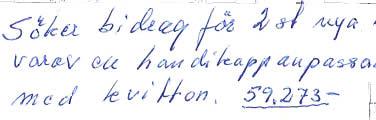 Söker bidrag för 2 st nya
varav en handikappanpassa
med kvitton. 59.273-